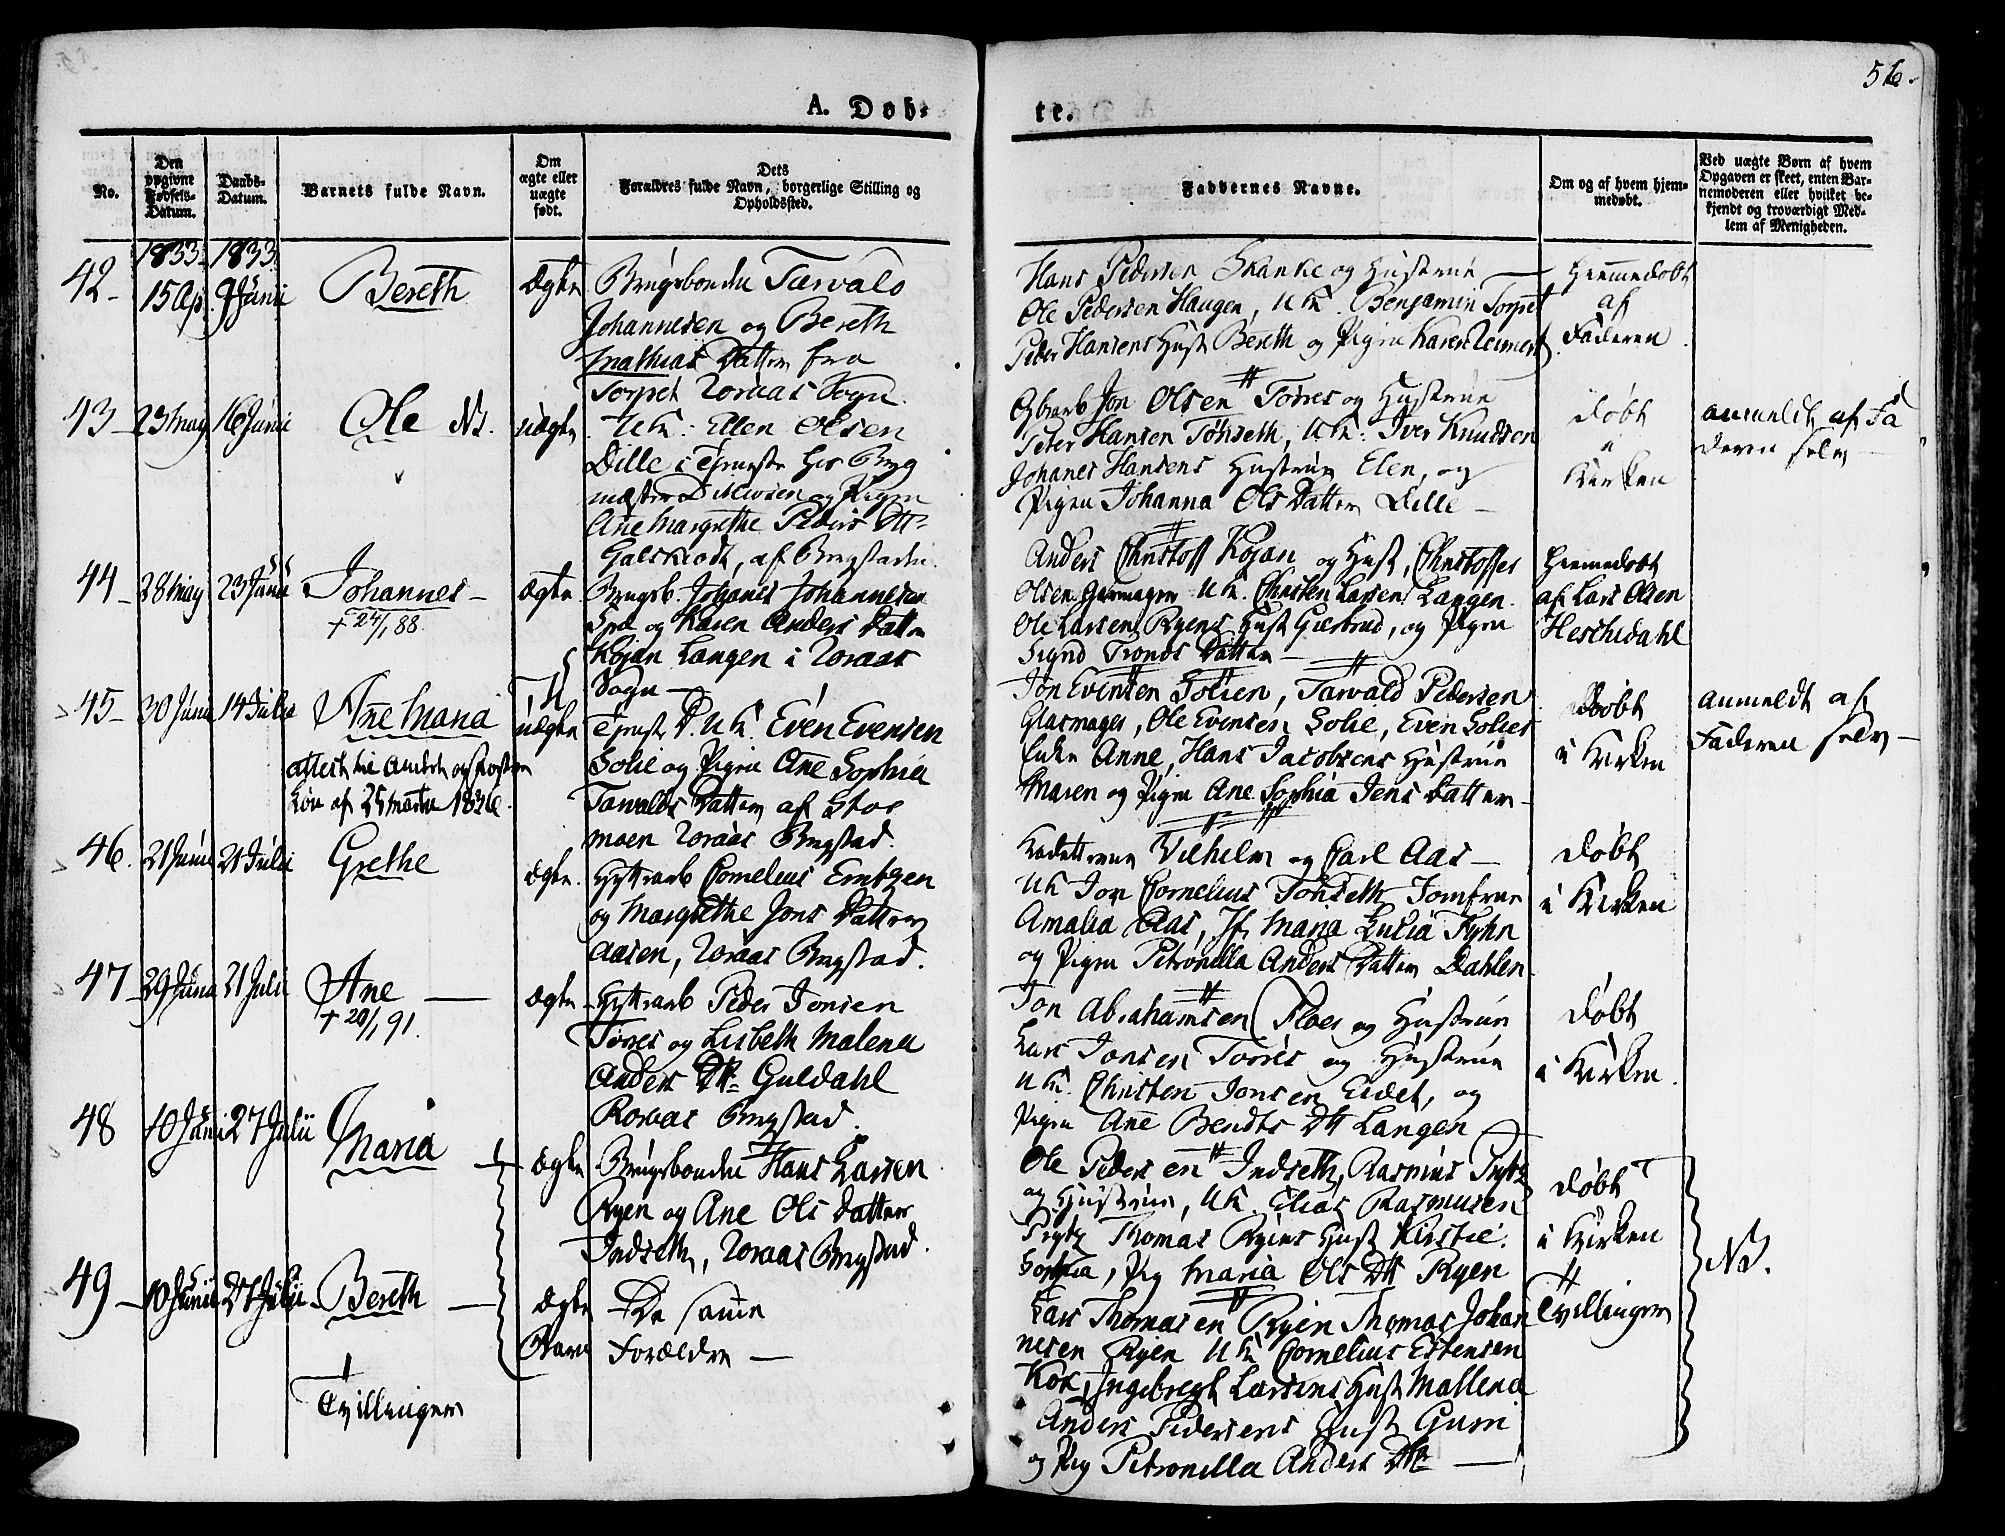 56.
A. Døb-
te.
No.
Den opgivne Fødsels-Datum.
Daabs-Datum.
Barnets fulde Navn.
Om ægte eller uægte født.
Dets Forældres fulde Navn, borgerlige Stilling og Opholdssted.
Faddernes Navne.
Om og af hvem hjem-
medøbt.
Ved uægte Børn af hvem
Opgaven er skeet, enten Bar-
nemoderen eller hvilket be-
kjendt og troværdigt Med-
lem af Menigheden.
1833 1833
42- 15 Ap. 9 Junii Bereth ægte Brugsbonde Tarvald
Johannesen og Bereth
Mathias Datter fra
Torpet Røraas Sogn.
Hans Pedersen Skanke og Hustrue
Ole Pedersen Haugen, Uk. Benjamin Torpet
Peder Hansens Hust Bereth og Pigen Karen
Hiemmedøbt
af
Faderen
43- 23 May 16 Junii Ole N. uægte Uk: Ellen Olsen
Dille i Tjeneste hos Byg
mester og Pigen
Ane Margrethe Peders Dtr
af Bergstaden.
Jon Olsen Torres og Hustrue
Peter Hansen Tønseth, Uk: Iver Knudsen
Johanes Hansens Hustrue Elen, og
Pigen Johanna Ols Datter Dille -
Døbt
i
Kirken
anmeldt af Fa
deren selv
44- 28 May 23 Junii Johannes - ægte Brugsb. Johanes Johannesen
og Karen Anders Datter
Kojan Langen i Røraas
Sogn -
+ 24/1 88.
Anders Christoff Kojan og Hust, Christoffer
Olsen Garmager Uk. Christen Larsen Langen
Ole Larsen Ryens Hust Giertrud, og Pigen
Sigrid Tronds Datter -
Hiemmedøbt
af Lars Olsen
Heschedahl
45- 30 Junii 14 Julii Ane Maria uægte Tjenest D. Uk. Even Evensen
Solie og Pigen Ane Sophia
Tarvalds Datter af Stor
moen Røraas Bergstad.
af 25 Martii 1836.
Jon Evensen Solien, Tarvald Pedersen
Glasmager, Ole Evensen Solie, Even Solies
Enke Anne, Hans Jacobsens Hustrue
Maren og Pigen Ane Sophia Jens Datter -
Døbt
i Kirken
anmeldt af
Faderen selv -
46. 21 Junii 21 Julii Grethe ægte. Hyttearb Cornelius Emtgen
og Margrethe Jons Datter
Aasen, Røraas Bergstad.
Kadetterne Vilhelm og Carl Aas -
Uk Jon Cornelius Tønseth Jomfrue
Amalia Aas, Jf. Maria Lucia Fyhn
og Pigen Petronilla Anders Datter Dahlen
Døbt
i Kirken
47- 29 Junii 21 Julii Ane - ægte Hyttearb Peder Jonsen
Torres og Lisbeth Malena
Anders Dtr Guldahl
Roraas Bergstad.
+ 20/1 91.
Jon Abrahamsen Floer og Hustrue
Lars Jonsen Torres og Hustrue
Uk. Christen Jonsen Eidet, og
Pigen Ane Bendts Dtt Langen
Døbt
i Kirken
48 10 Junii 27 Julii Maria - ægte Brugsbonde Hans Larsen
Ryen og Ane Ols Datter
Indseth, Røraas Bergstad.
Ole Pedersen Indseth, Rasmus Prytz
og Hustrue, Uk. Elias Rasmusen
Prytz Thomas Ryens Hust Kirstie.
Sophia, Pig Maria Ols Dtt Ryen
Døbt
i Kirken
NB.
49- 10 Junii 27 Julii Bereth - ægte De samme
Barn Forældre -
Tvillinger
Lars Thomasen Ryen Thomas Johan
nesen Ryen Uk Cornelius Estensen
Kok, Ingebregt Larsens Hust Mallena
Anders Pedersens Hust Guri
og Pig Petronilla Anders Dtr -
Tvillinger